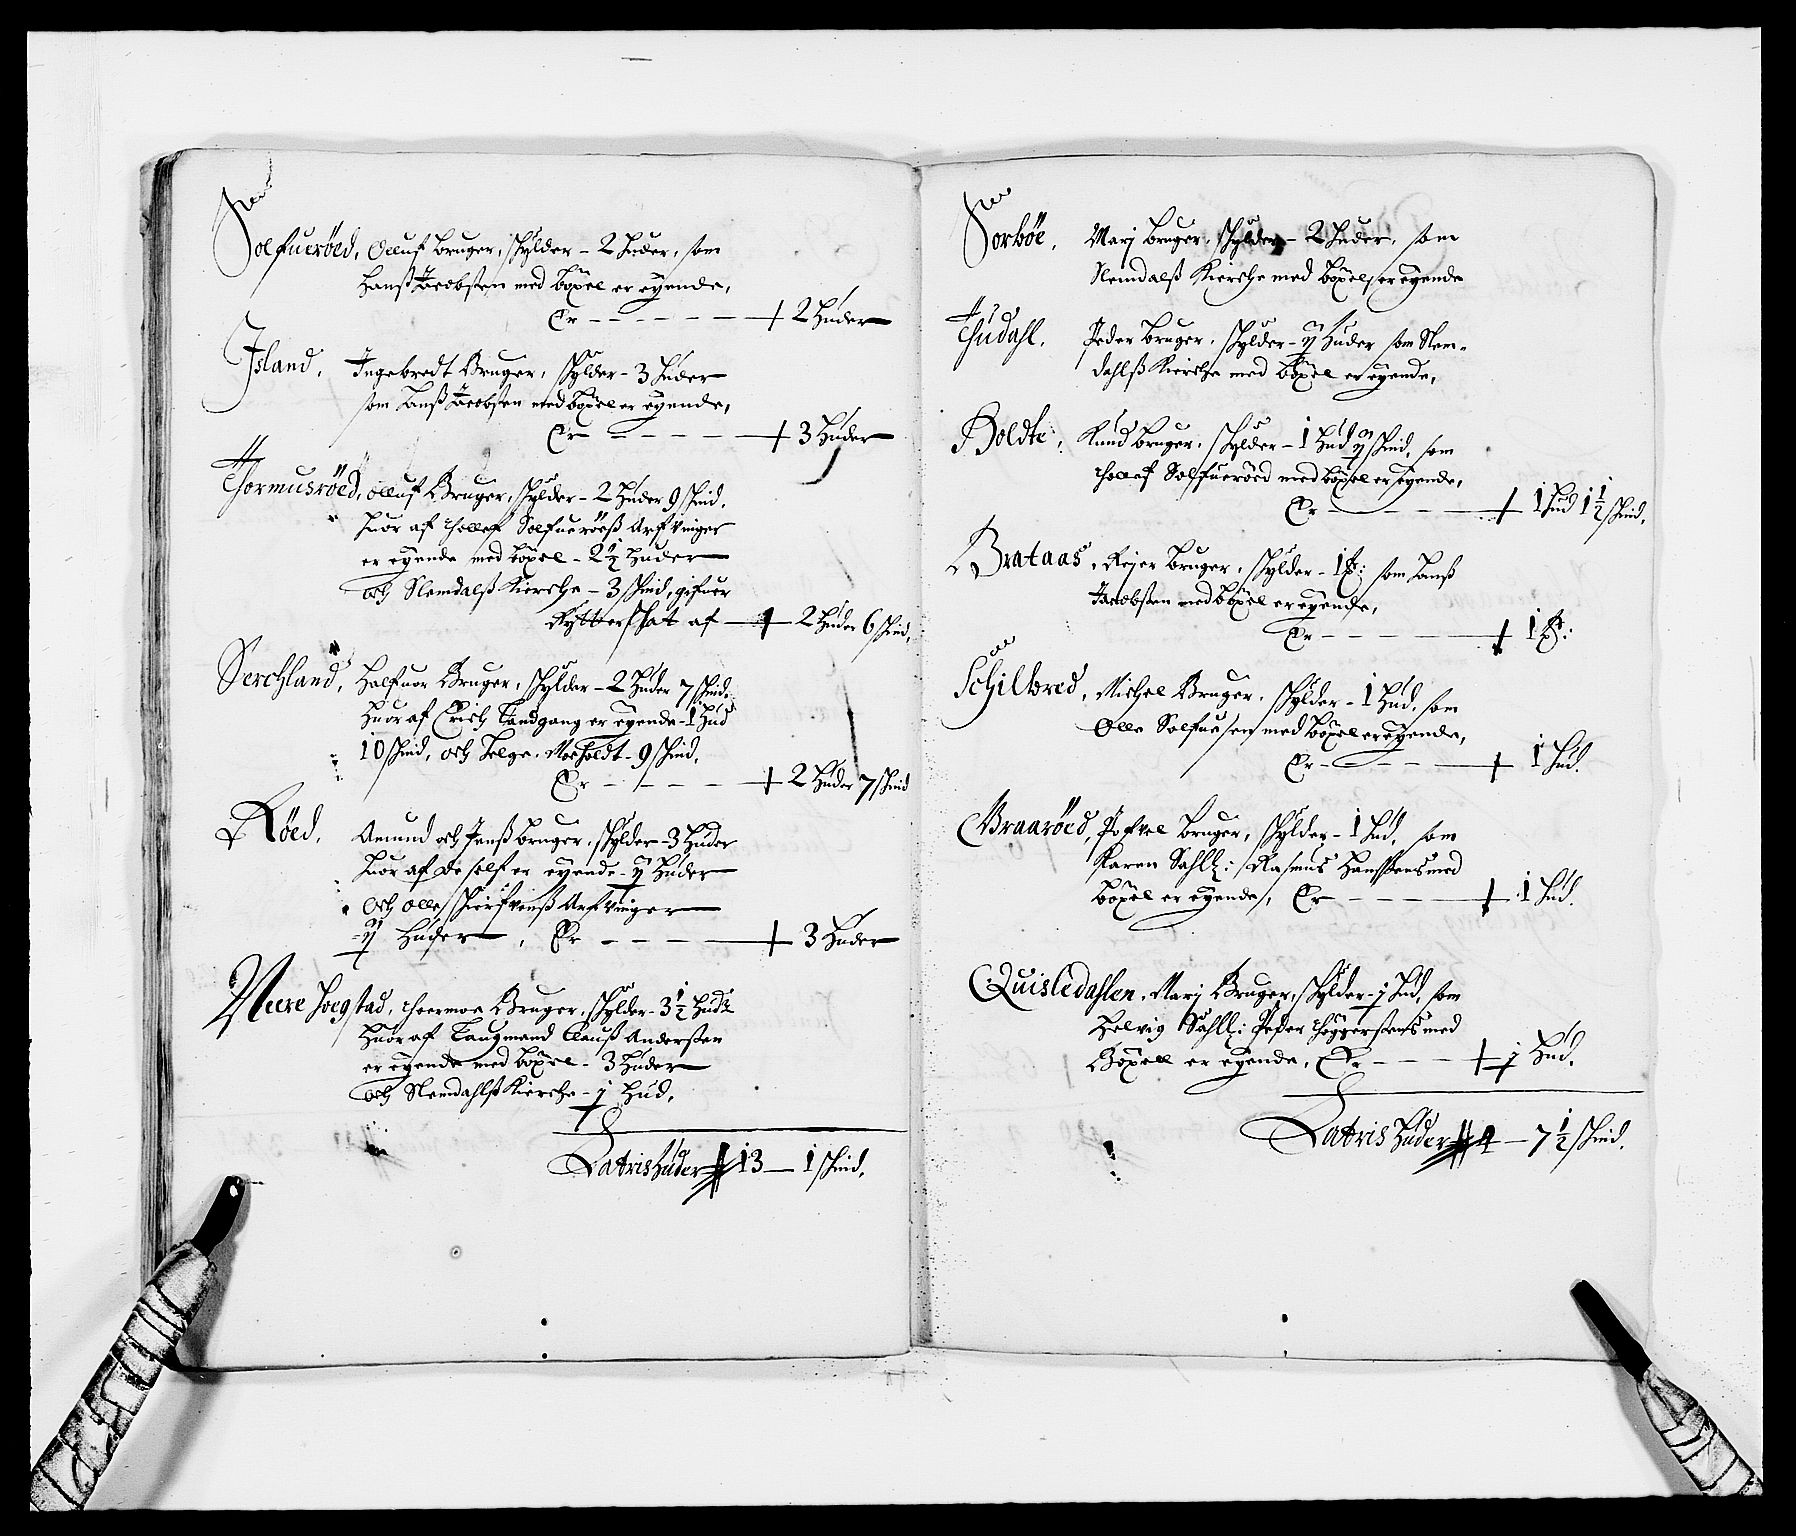 Solfueröed, Olluf bruger, schylder - 2 huder, som
Hanß Jacobsen med böxel er eyende,
Er - - - - - - 2 huder
Jsland, Ingebredt Bruger, schylder - 3 huder
som Hanß Jacobsen med böxel er eyende,
Er - - - - 3 huder
Thormusröed, Olluf Bruger, schylder - 2 huder 9 schind,
huor af Thollef Solfueröeß Arfvinger
er eyende med böxel - 2 1/2 huder
och Slemdalß Kierche - 3 schind, gifuer
Rytterschat af - 2 huder 6 schind,
Serchland, Halfuor Bruger, schylder - 2 huder 7 schind:
huor af Erich Landgang er eyende - 1 hud
10 schind, och Helge Moeholdt - 9 schind,
Er - - - - 2 huder 7 schind
Röed, Amund och Jenß bruger, schylder - 3 huder
huor af de self er eyende - ij huder
och olle schierfvenß Arfvinger
- ij huder, Er - - - - 3 huder
Neere Hoegstad, Thormoe Bruger, schylder - 3 1/2 hud:
huor af Laugmand Clauß Andersen
er eyende med böxel - 3 huder
och Slemdahlß Kierche - j hud,
Latris huder 13 - 1 schind,
Sorböe, Marj bruger, schylder - 2 huder, som
Slemdalß Kierche med böxel er eyende
Thudahl, Peder bruger, schylder - ij huder som Slem-
dahlß Kierche med böxel er eyende,
Holdte, Knud bruger, schylder - 1 hud ij schind, som
Thollef Solfueröed med böxel er eyende,
Er - - - 1 hud 1 1/2 schind,
Brataas, Reier bruger, schylder - 1 ℔: som Hanß
Jacobsen med böxel er eyende,
Er - - - - 1 ℔:
Schilbred, Michel Bruger, schylder - 1 hud, som
Olle Solfuesen med böxel er eyende,
Er - - - - 1 hud.
Braaröed, Pofvel bruger, schylder - 1 hud, som
Karen Sahl: Rasmus Hansens med
böxel er eyende, Er - - - - 1 hud.
Quisledahlen, Marj Bruger, schylder - j hud, som
Helvig Sahl: Peder Thöggersens med
Böxell er eyende, Er - - - - j hud.
Latris huder 4 - 7 1/2 schind.